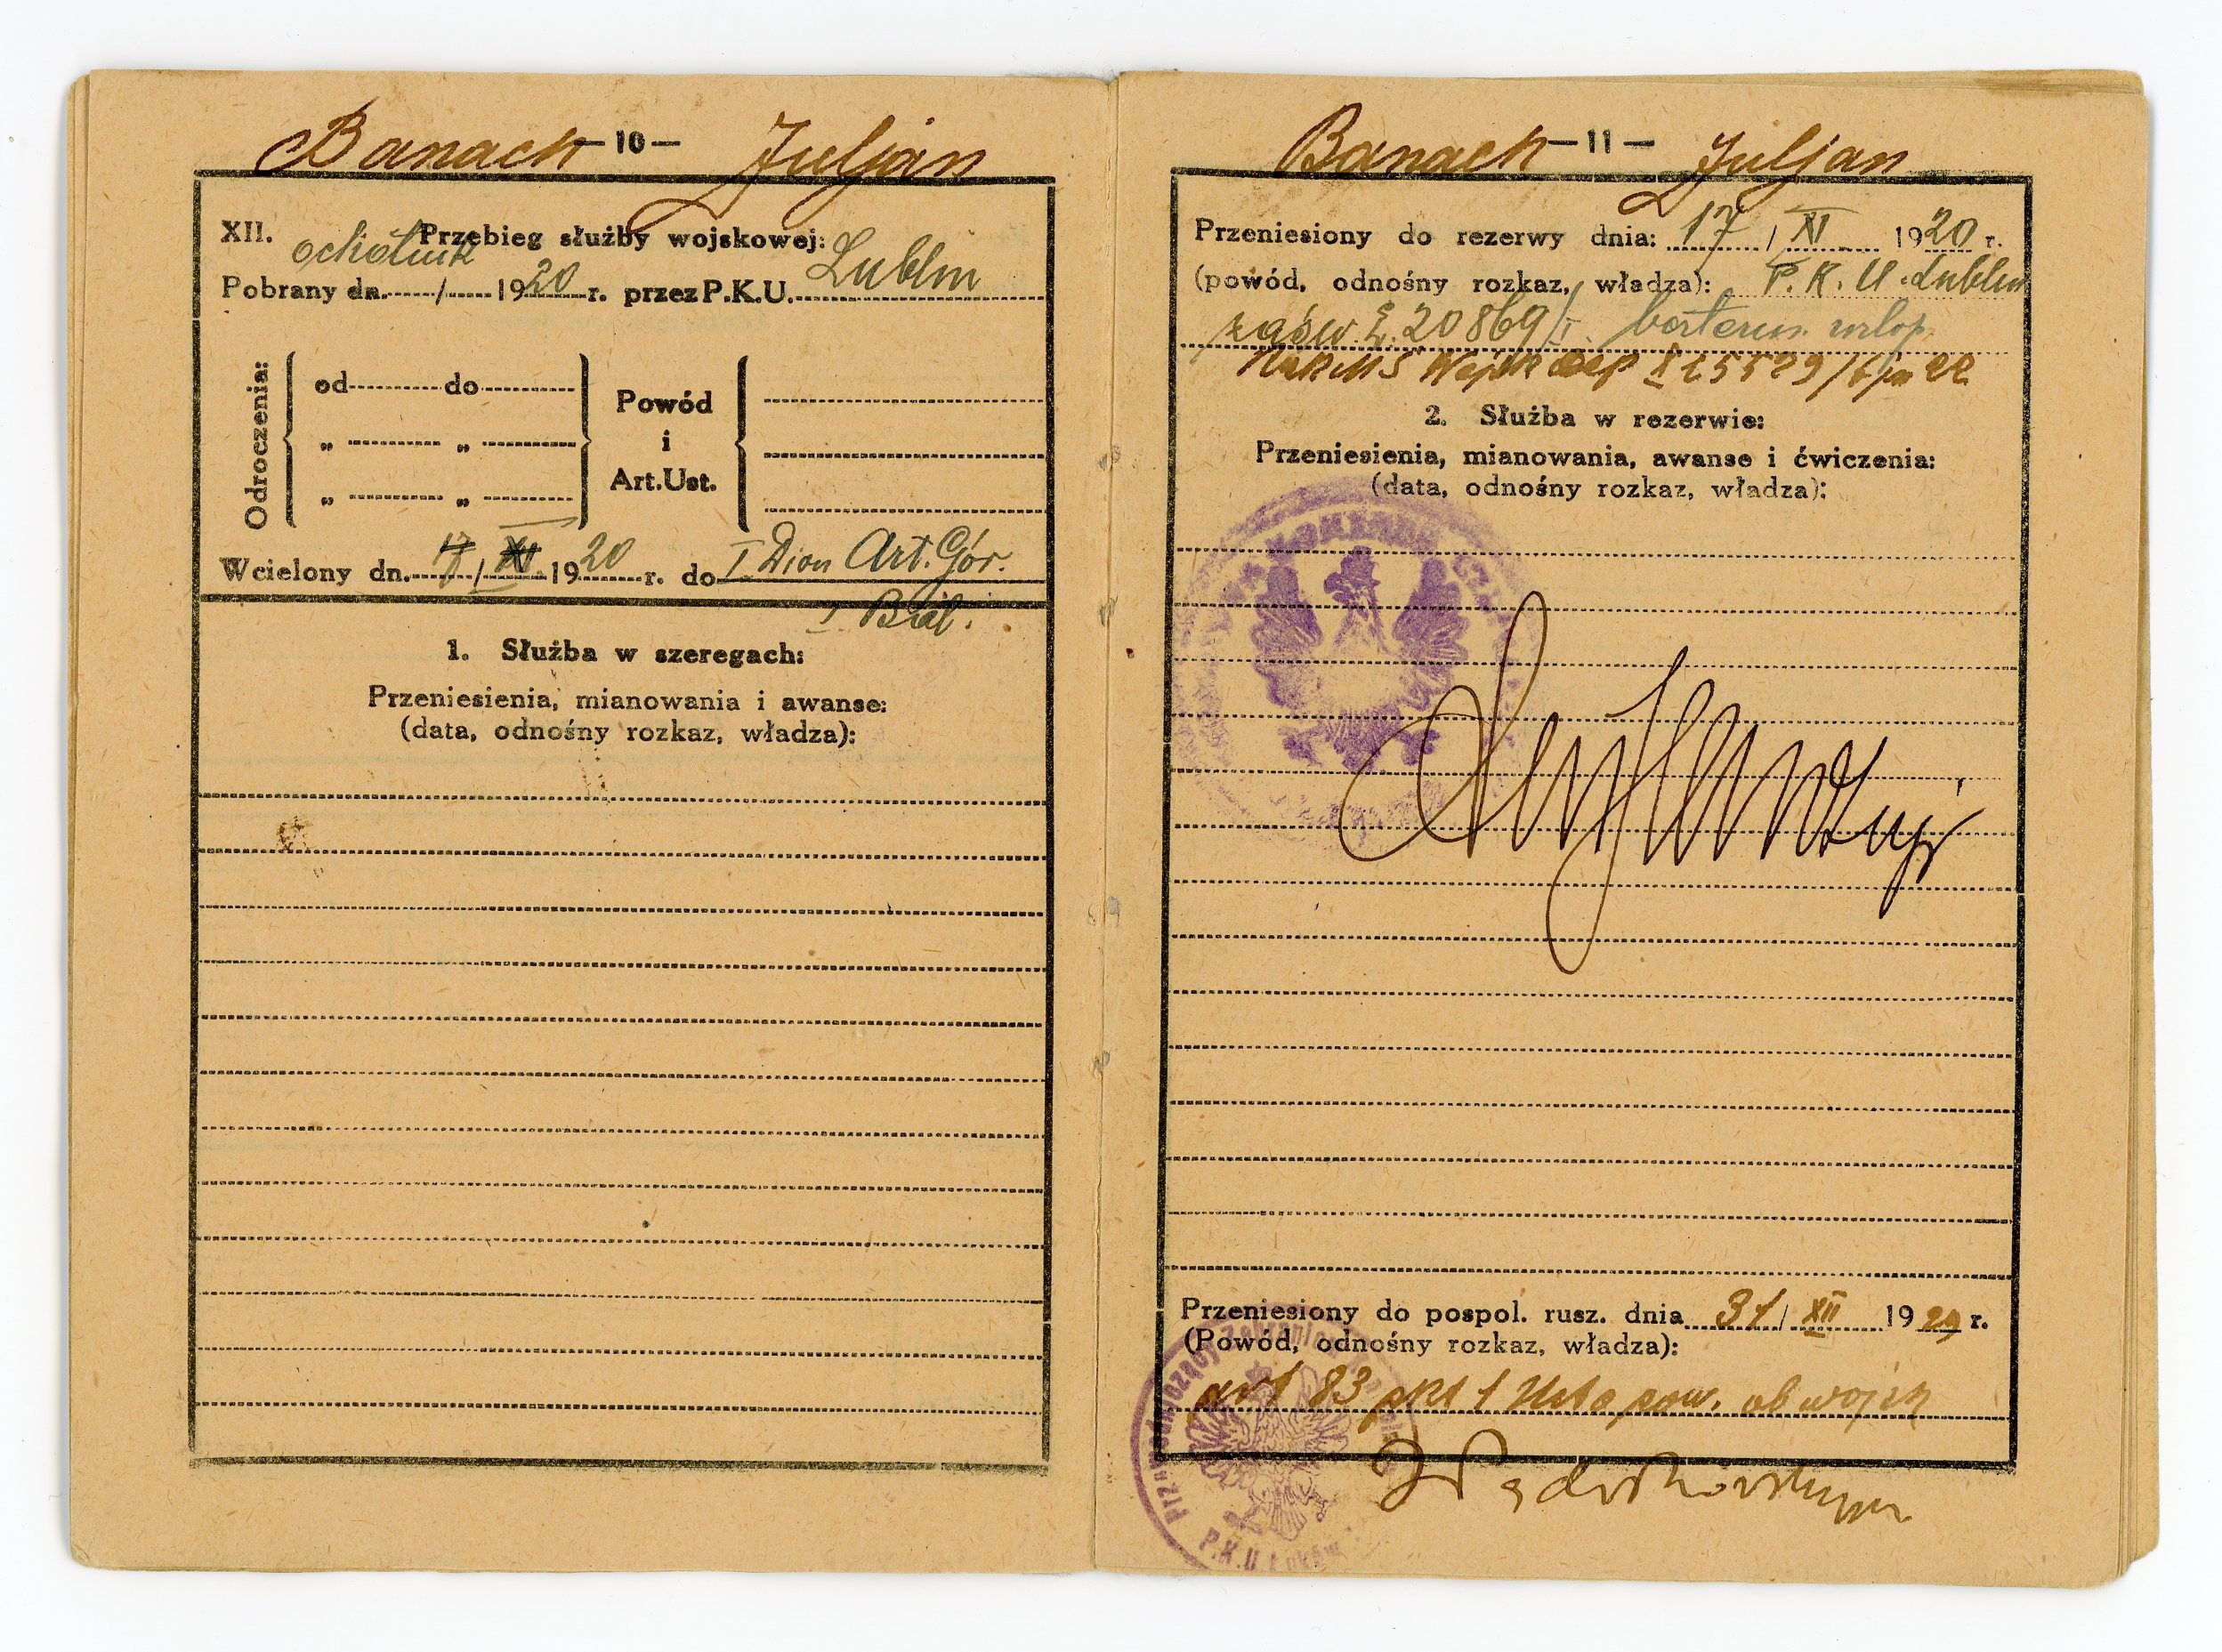 Banach — 10 — Juljan
XII. Przebieg służby wojskowej:
ochotnik
Pobrany dn. / 1920 r. przez P.K.U. Lublin
Odroczenia:
od do
„ „
„ „
Powód
i
Art. Ust.
Wcielony dn. 17 / XI 1920 r. do I Dion Art. Gór.
1. Służba w szeregach:
Przeniesienia, mianowania i awanse:
(data, odnośny rozkaz, władza):
Banach — 11 — Juljan
Przeniesiony do rezerwy dnia: 17 / XI 1920 r.
(powód, odnośny rozkaz, władza): P.K.U. Lublin
zaśw. L. 20869/I. urlop
2. Służba w rezerwie:
Przeniesienia, mianowania, awanse i ćwiczenia:
(data, odnośny rozkaz, władza):
Przeniesiony do pospol. rusz. dnia 31 / XII 1929 r.
(Powód, odnośny rozkaz, władza):
art 83 pkt 1 Ust o pow. ob wojsk
P.K.U. Łuków